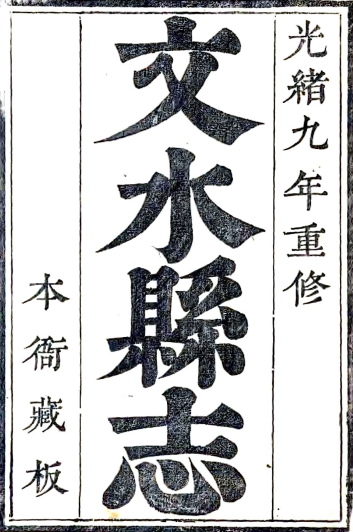 光緒九年重修
文水縣志
本衙藏板